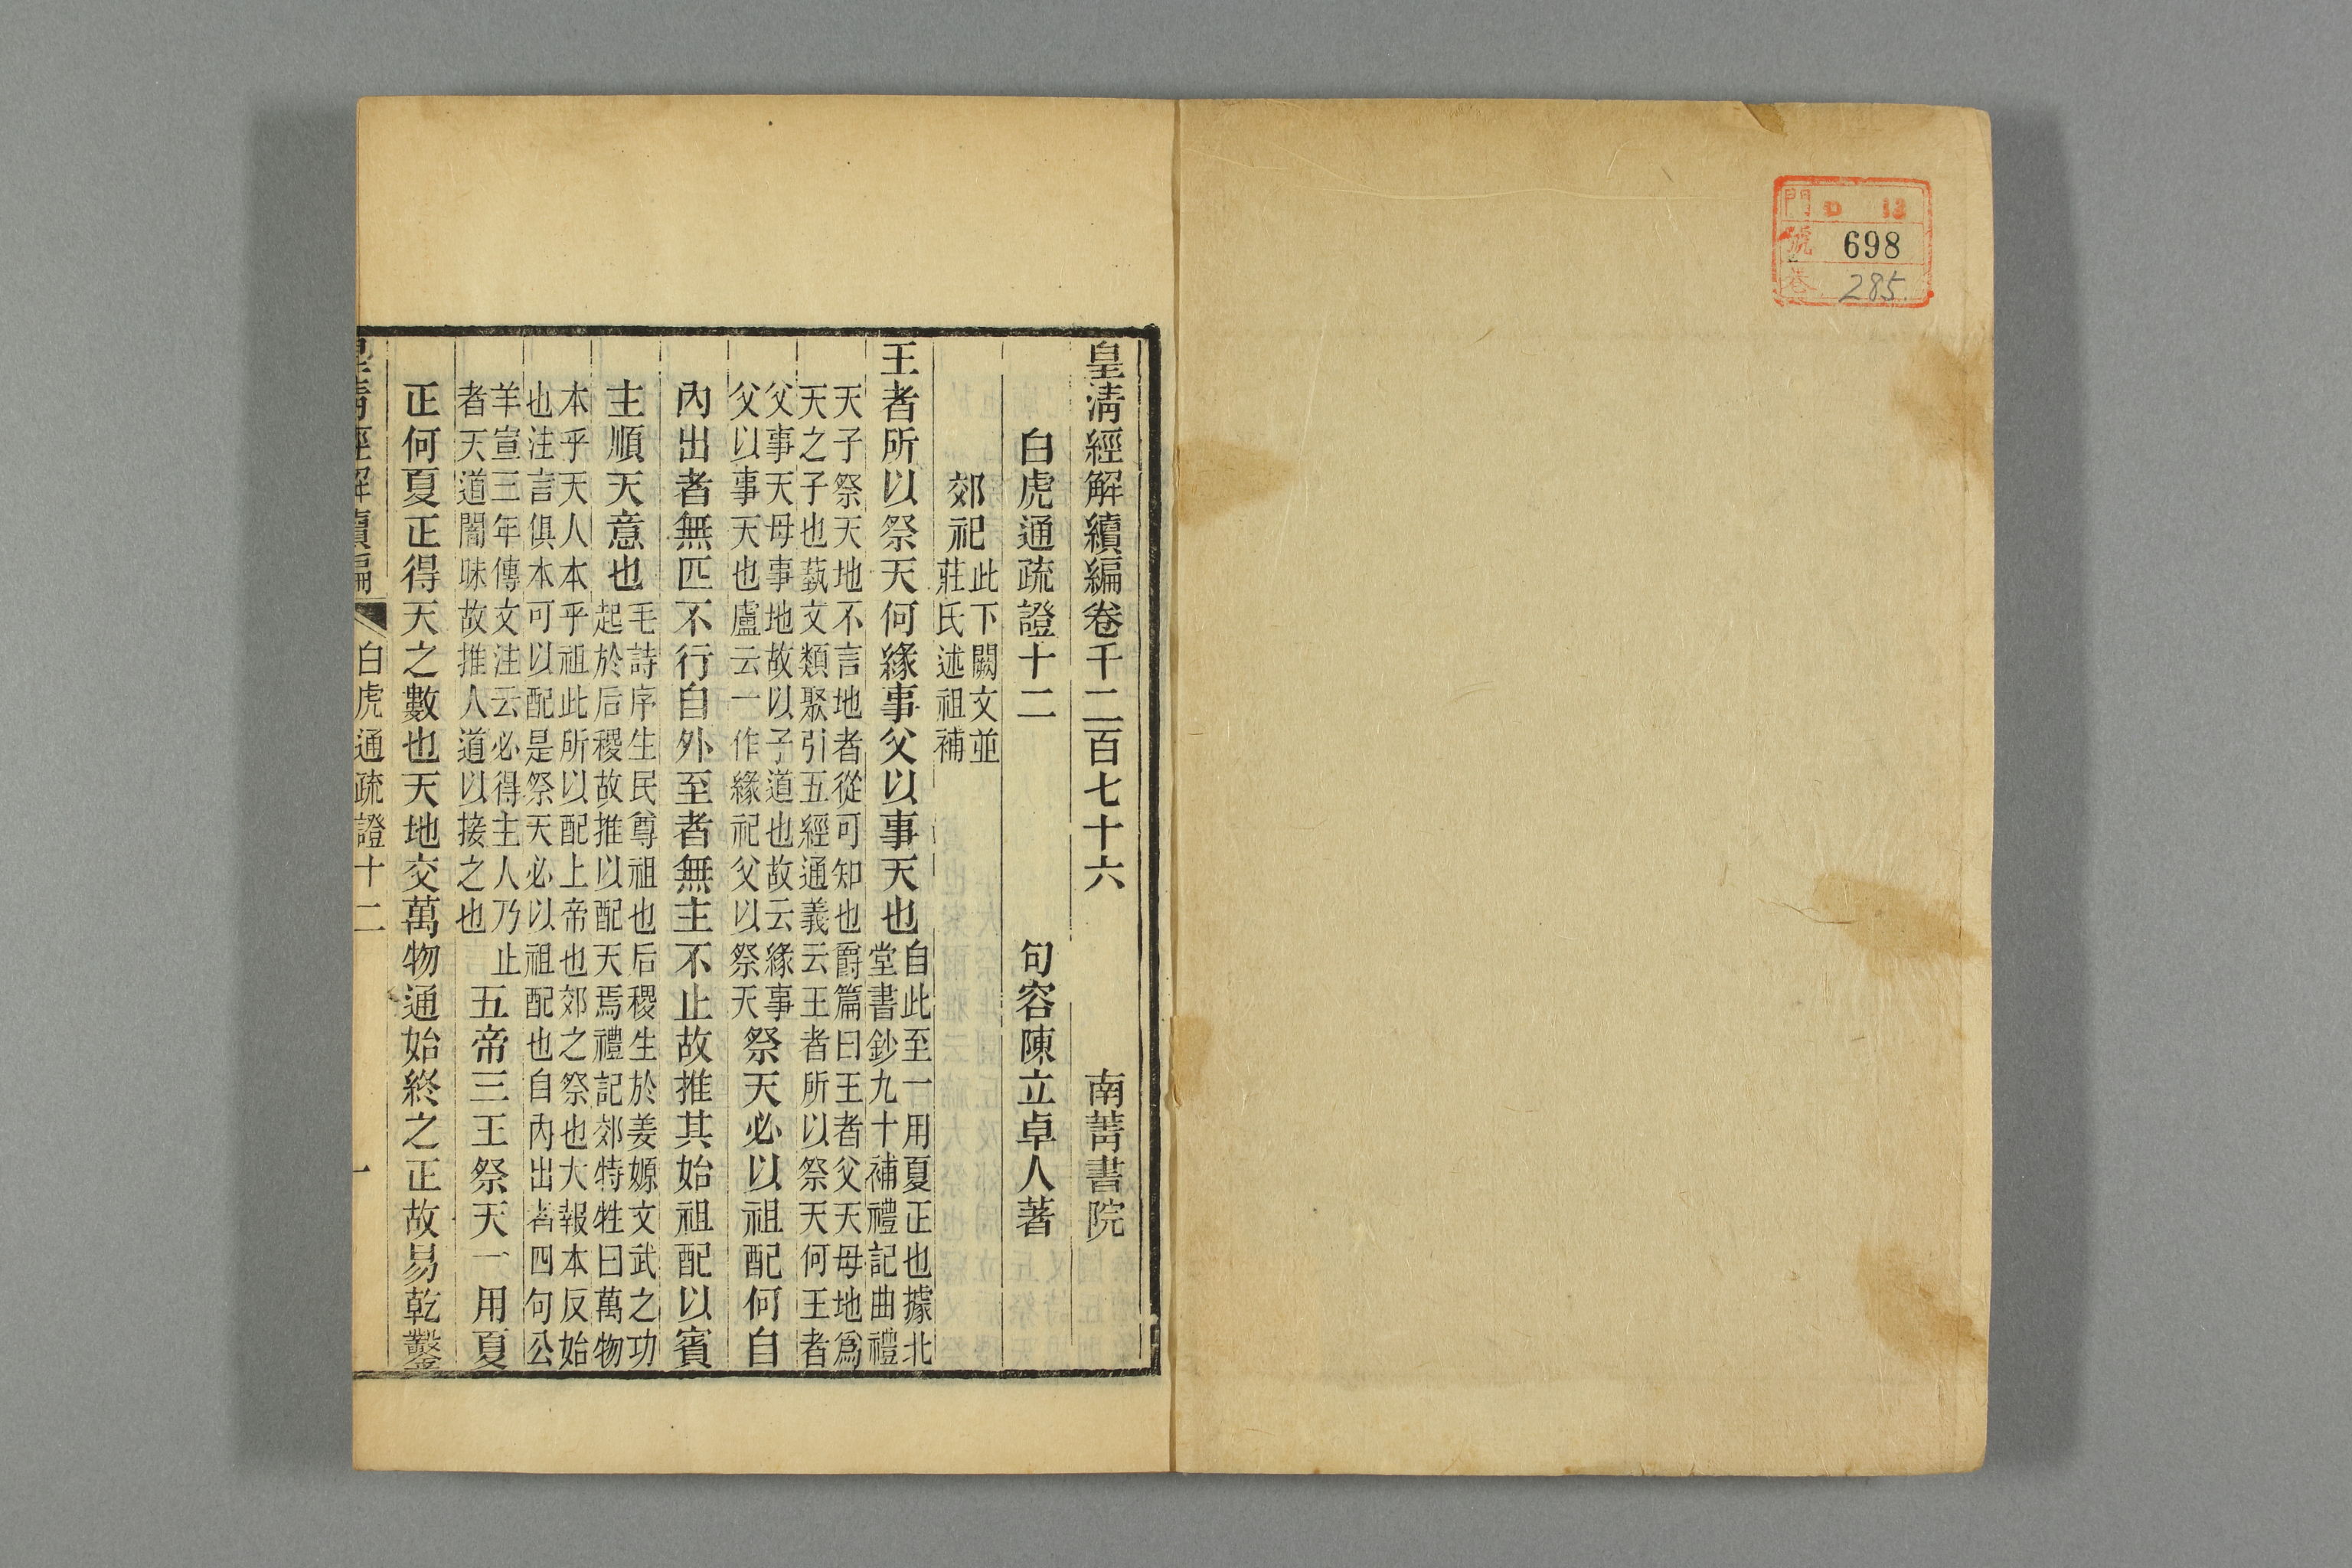 門 D 13
號 698
卷 285
皇清經解續編卷千二百七十六 南菁書院
白虎通疏證十二 句容陳立卓人著
郊祀
此下闕文並
莊氏述祖補
王者所以祭天何緣事父以事天也
自此至一用夏正也據北
堂書鈔九十補禮記曲禮
天子祭天地不言地者從可知也爵篇曰王者父天母地爲
天之子也蓺文類聚引五經通義云王者所以祭天何王者
父事天母事地故以子道也故云緣事
父以事天也盧云一作緣祀父以祭天
祭天必以祖配何自
內出者無匹不行自外至者無主不止故推其始祖配以賓
主順天意也
毛詩序生民尊祖也后稷生於姜嫄文武之功
起於后稷故推以配天焉禮記郊特牲曰萬物
本乎天人本乎祖此所以配上帝也郊之祭也大報本反始
也注言俱本可以配是祭天必以祖配也自內出者四句公
羊宣三年傳文注云必得主人乃止
者天道闇昧故推人道以接之也
五帝三王祭天一用夏
正何夏正得天之數也天地交萬物通始終之正故易乾鑿
皇清經解續編 白虎通疏證十二 一